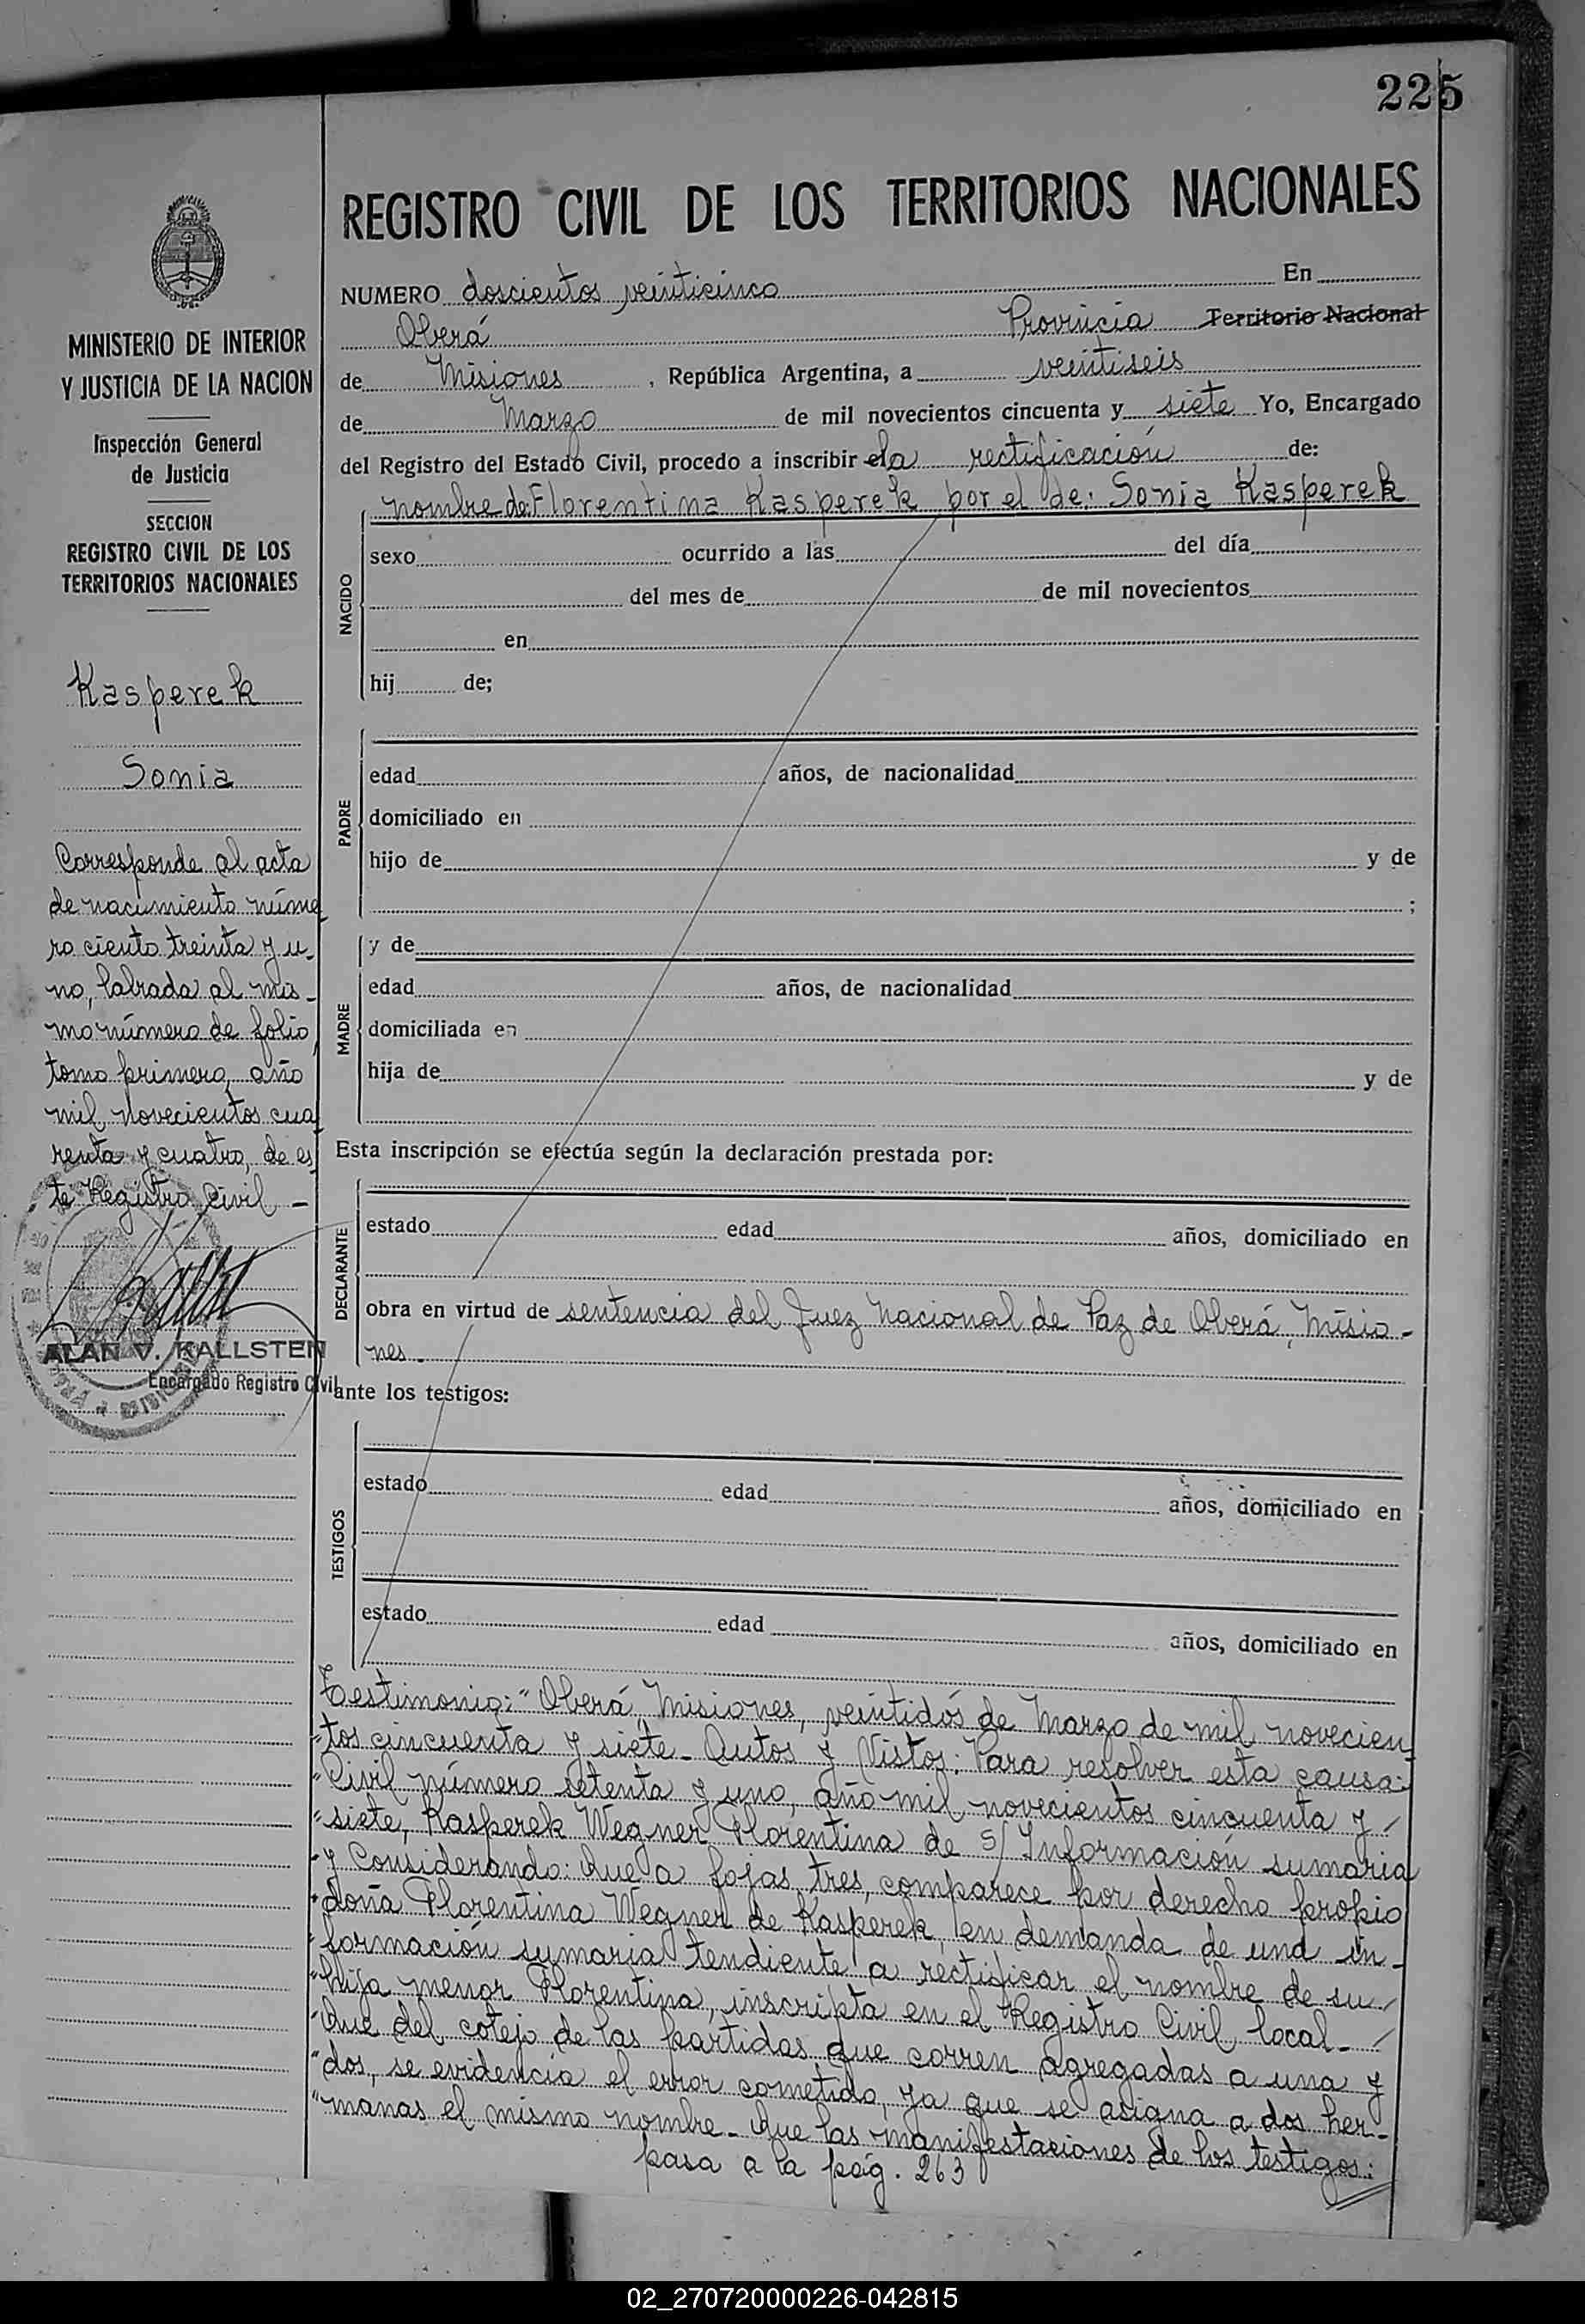 225
REGISTRO CIVIL DE LOS TERRITORIOS NACIONALES
MINISTERIO DE INTERIOR
Y JUSTICIA DE LA NACION
Inspección General
de Justicia
SECCION
REGISTRO CIVIL DE LOS
TERRITORIOS NACIONALES
Kasperek
Sonia
Corresponde al acta
de nacimiento núme
ro ciento treinta y u-
no, labrada al mis-
mo número de folio,
tomo primero, año
mil novecientos cua
renta y cuatro, de es
te Registro Civil -
ALAN V. KALLSTEN
Encargado Registro Civil
NUMERO doscientos veinticinco En
Oberá Provincia Territorio Nacional
de Misiones, República Argentina, a veintiseis
de Marzo de mil novecientos cincuenta y siete Yo, Encargado
del Registro del Estado Civil, procedo a inscribir el a rectificación de:
nombre de: Florentina Kasperek por el de: Sonia Kasperek
NACIDO
sexo ocurrido a las del día
del mes de de mil novecientos
en
hij de;
PADRE
edad años, de nacionalidad
domiciliado en
hijo de y de
;
y de
MADRE
edad años, de nacionalidad
domiciliada en
hija de y de
Esta inscripción se efectúa según la declaración prestada por:
DECLARANTE
estado edad años, domiciliado en
obra en virtud de sentencia del Juez Nacional de Paz de Oberá, Misio-
nes.
ante los testigos:
TESTIGOS
estado edad años, domiciliado en
estado edad años, domiciliado en
Testimonio: "Oberá, Misiones, veintidós de Marzo de mil novecien
"tos cincuenta y siete - Autos y Vistos: Para resolver esta causa:
"Civil número setenta y uno, año mil novecientos cincuenta y /
"siete, Kasperek Wegner Florentina de s/ Información sumaria
"y Considerando: Que a fojas tres, comparece por derecho propio
"doña Florentina Wegner de Kasperek, en demanda de una in-
"formación sumaria tendiente a rectificar el nombre de su /
"hija menor Florentina, inscripta en el Registro Civil local - /
"Que del cotejo de las partidas que corren agregadas a una y
"dos, se evidencia el error cometido, ya que se asigna a dos her-
"manas el mismo nombre - Que las manifestaciones de los testigos:
pasa a la pág. 263
02_270720000226-042815